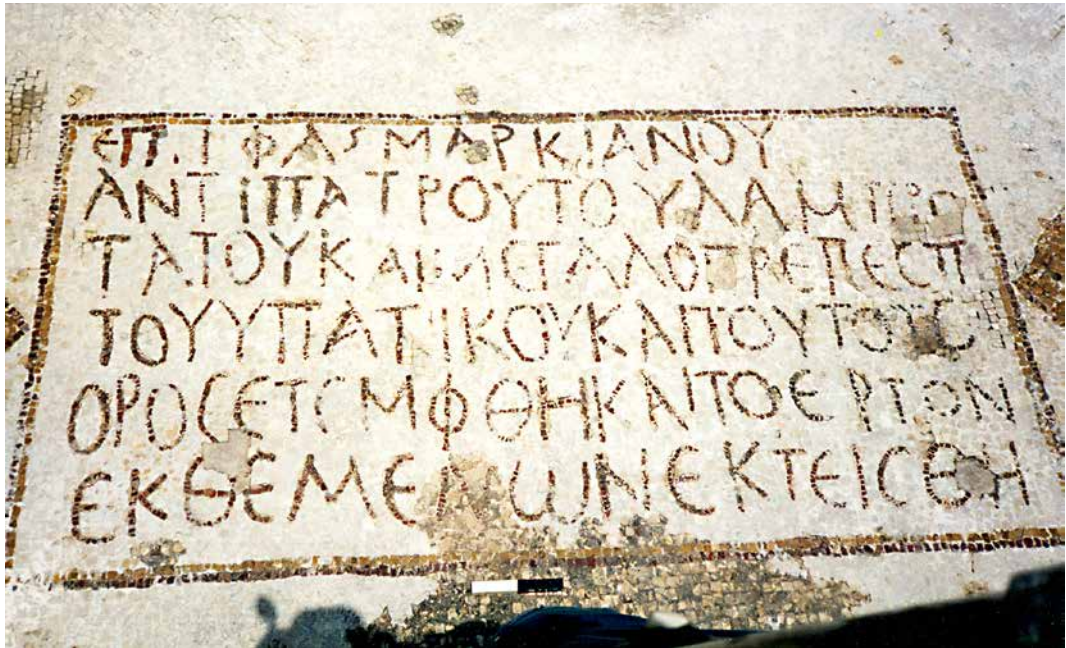 ΕΠ.Ι ΦΛΑS ΜΑΡΚΙΑΝΟΥ
ΑΝΤΙΠΑΤΡΟΥΤΟΥΛΑΜΠΡΟ
ΤΑΤΟΥΚΑΙΜΕΓΑΛΟΠΡΕΠΕСΤ
ΤΟΥΥΠΑΤΙΚΟΥΚΑΠΟΥΤΟΥС
ΟΡΟСΕΤСΜΦΘΗΚΑΙΤΟΕΡΓΟΝ
ΕΚΘΕΜΕΛΩΝΕΚΤΕΙСΘΗ